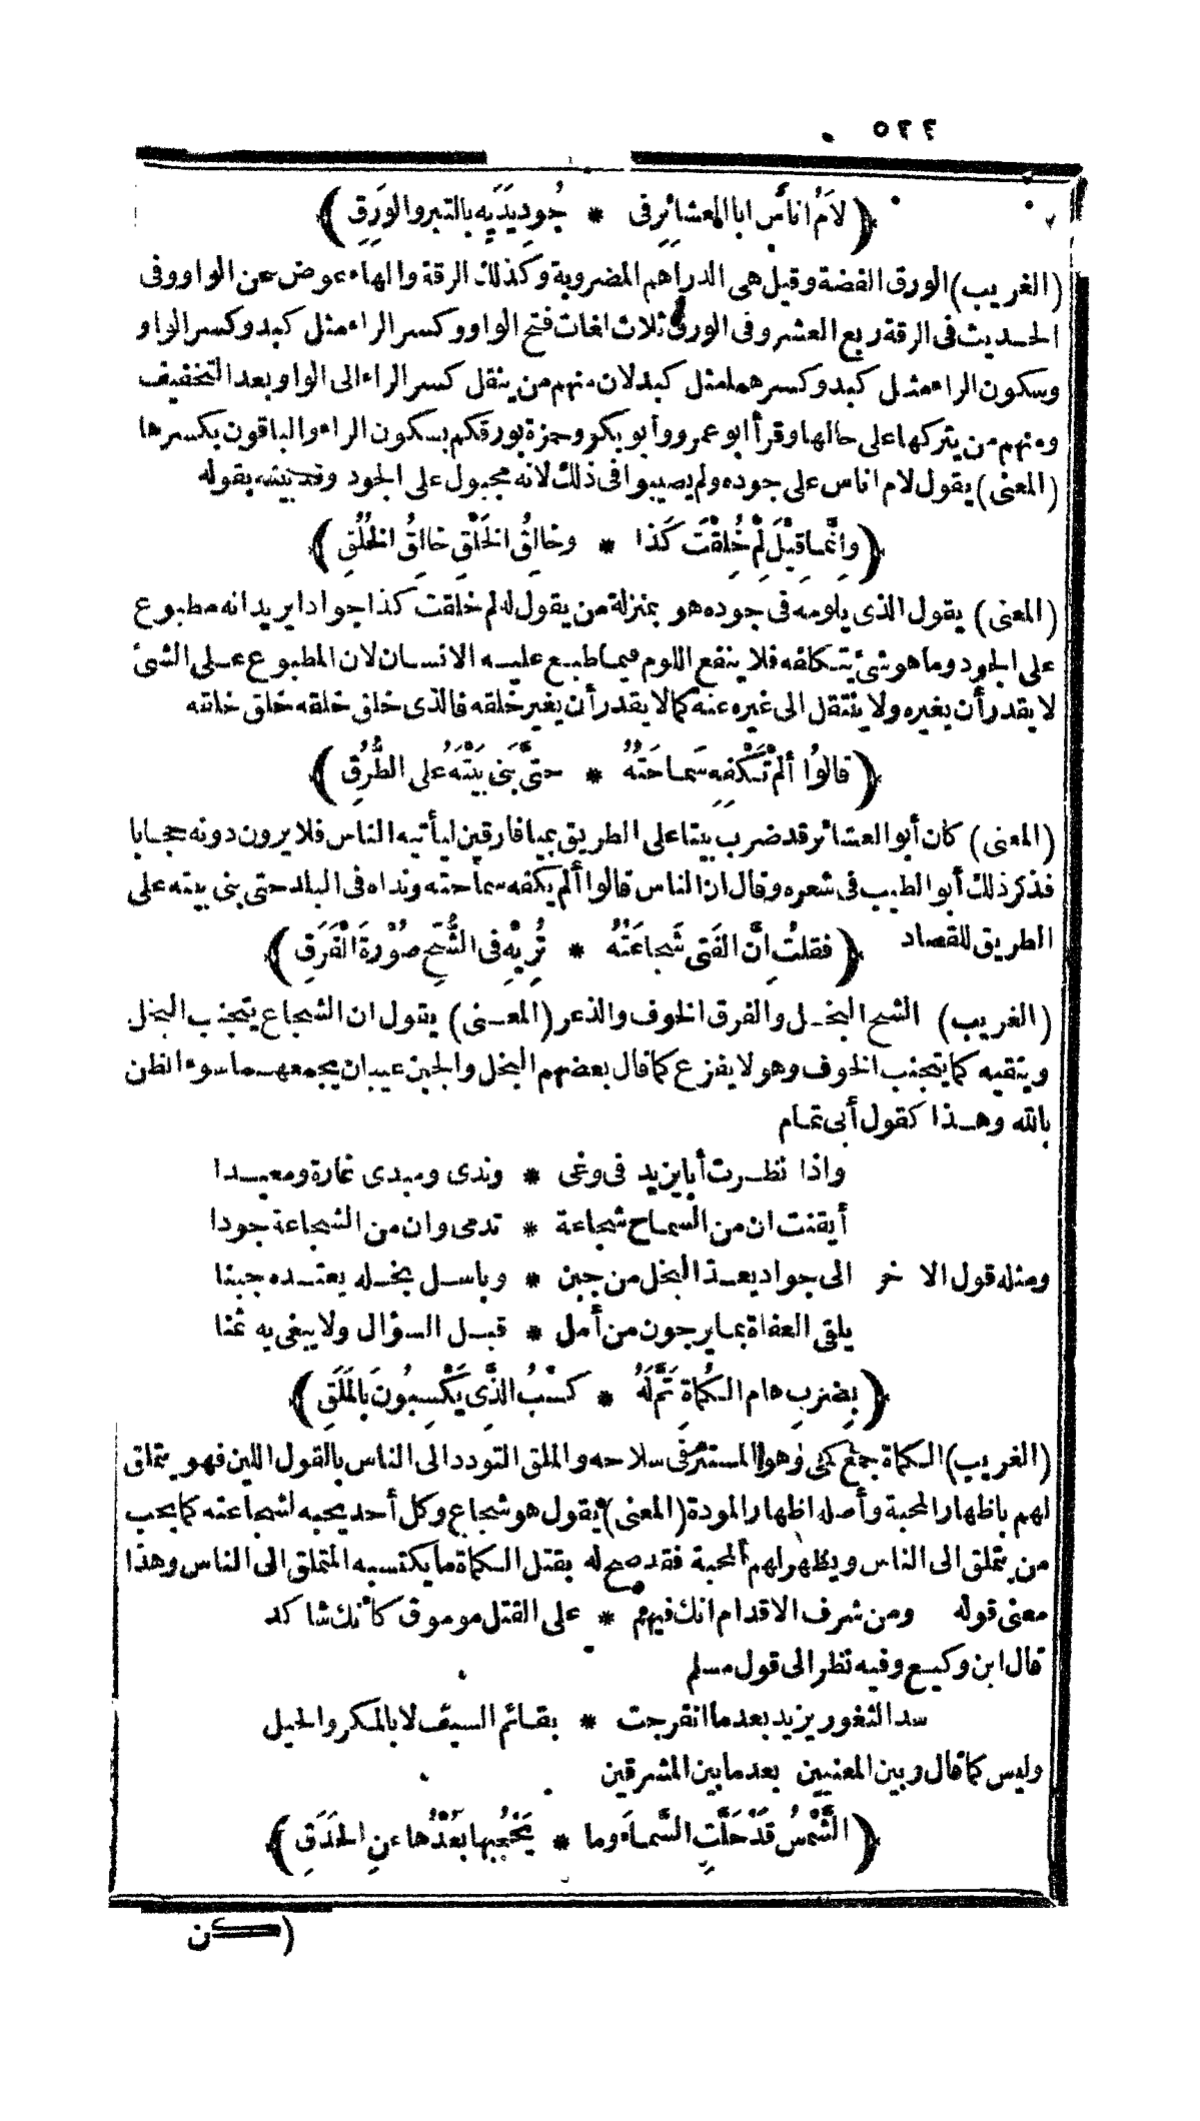 ٥٢٢
(لَامَ أُناسٌ ابا العشائرِ فى * جُودِ يَدَيْهِ بالتبر والوَرِقِ)
(الغريب) الورق الفضة وقيل هى الدراهم المضروبة وكذلك الرقة والهاء عوض عن الواو وفى
الحديث فى الرقة ربع العشر وفى الورق ثلاث لغات فتح الواو وكسر الراء مثل كبد وكسر الواو
وسكون الراء مثل كبد وكسرهما مثل كبد لان منهم من ينقل كسر الراء الى الواو بعد التخفيف
ومنهم من يتركها على حالها وقرأ ابو عمرو وأبو بكر وحمزة بورقكم بسكون الراء والباقون بكسرها
(المعنى) يقول لام اناس على جوده ولم يصيبوا فى ذلك لانه مجبول على الجود وقد بينه بقوله
(وانَّما قِيْلَ لِمْ خُلِقْتَ كَذا * وخالِقُ الخَلْقِ خالِقُ الخُلُقِ)
(المعنى) يقول الذى يلومه فى جوده هو بمنزلة من يقول له لم خلقت كذا جوادا يريد انه مطبوع
على الجود وما هو شئ يتكلفه فلا ينفع اللوم فيما طبع عليه الانسان لان المطبوع على الشئ
لا يقدر أن يغيره ولا ينتقل الى غيره عنه كما لا يقدر أن يغير خلقه فالذى خلق خلقه خلق خلقه
(قالوُا ألَمْ تَكْفِهِ سَماحَتُهُ * حتَّى بَنى بَيْتَهُ على الطُّرُقِ)
(المعنى) كان أبو العشائر قد ضرب بيتا على الطريق بميافارقين ليأتيه الناس فلا يرون دونه حجابا
فذكر ذلك أبو الطيب فى شعره وقال ان الناس قالوا ألم يكفه سماحته ونداه فى البلد حتى بنى بيته على
الطريق للقصاد (فقلتُ اِنَّ الفَتى شَجاعَتُهُ * تُرِيْهِ فى الشُّحِّ صُوْرَةَ الْفَرَقِ)
(الغريب) الشح البخل والفرق الخوف والذعر (المعنى) يقول ان الشجاع يتجنب البخل
ويتقيه كما يتجنب الخوف وهو لا يفزع كما قال بعضهم البخل والجبن عيبان يجمعهما سوء الظن
بالله وهذا كقول أبى تمام
واذا نظرت أبا يزيد فى وغى * وندى ومبدى غارة ومعيدا
أيقنت ان من السماح شجاعة * تدمى وان من الشجاعة جودا
ومثله قول الاخر الى جواد يعد البخل من جبن * وباسل بخله يعتده جبنا
يلقى العفاة بما يرجون من أمل * قبل السؤال ولا يبغى به ثمنا
(بِضَرْبِ هامِ الكُماةِ تَمَّ لَهُ * كَسْبُ الذَّى يَكْسِبُونَ بالمَلَقِ)
(الغريب) الكماة جمع كمى وهو المستتر فى سلاحه والملق التودد الى الناس بالقول اللين فهو يتملق
لهم باظهار المحبة وأصله اظهار المودة (المعنى) يقول هو شجاع وكل أحد يحبه لشجاعته كما يحب
من يتملق الى الناس ويظهر لهم المحبة فقد صح له بقتل الكماة ما يكتسبه المتملق الى الناس وهذا
معنى قوله ومن شرف الاقدام انك فيهم * على القتل موموق كأنك شاكد
قال ابن وكيع وفيه نظر الى قول مسلم
سد الثغور يزيد بعد ما انفرجت * بقائم السيف لا بالمكر والحيل
وليس كما قال وبين المعنيين بعد ما بين المشرقين
(الشَّمْسُ قَدْ حَلَّتِ السَّماءَ وما * يَحْجُبُها بُعْدُها عنِ الحَدَقِ)
(كن